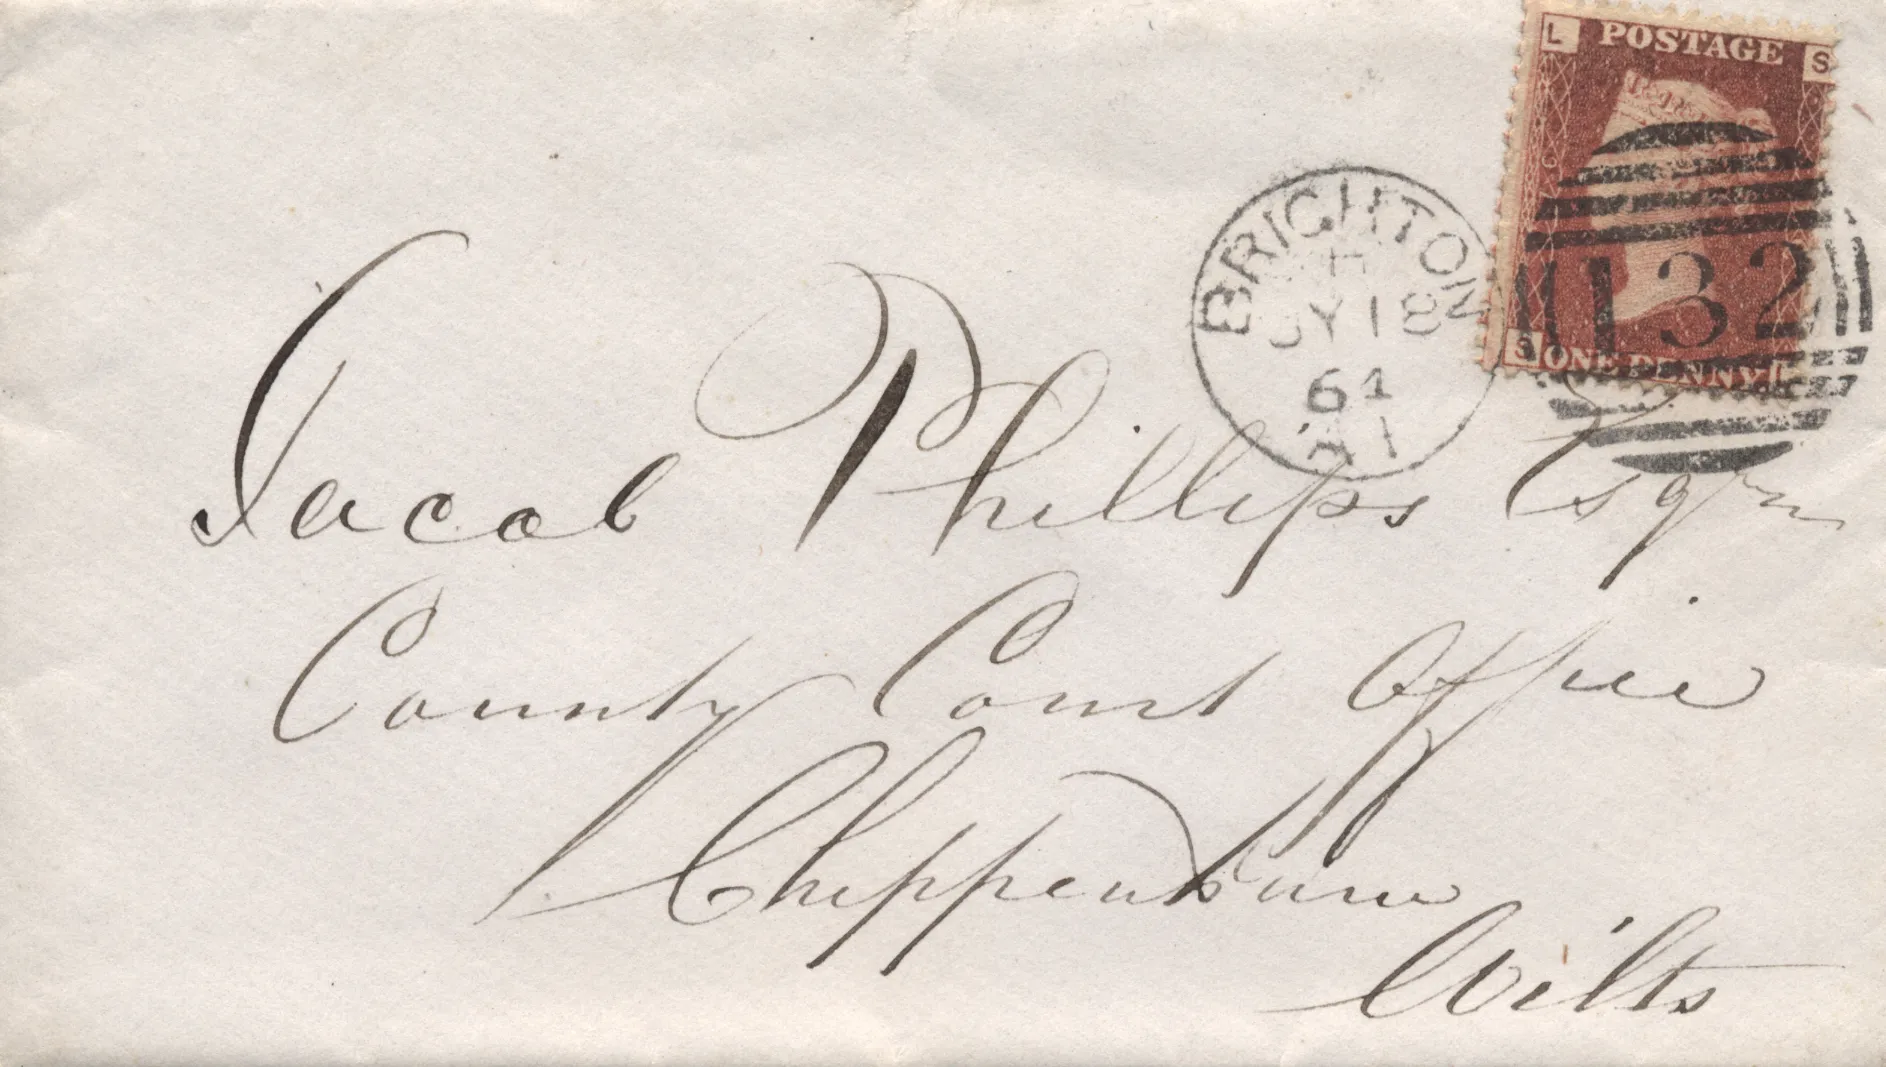 L POSTAGE S
BRIGHTON
JY 18
64
132
S ONE PENNY L
Jacob Phillips Esqre
County Court Office
Chippenham
Wilts